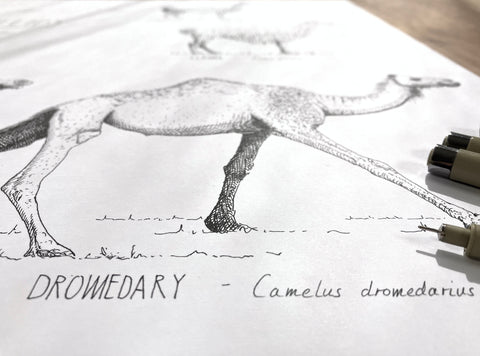 DROMEDARY - Camelus dromedarius